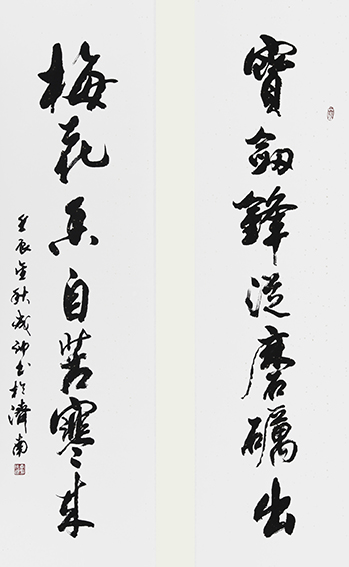 寶劍鋒從磨礪出
梅花香自苦寒來
壬辰金秋成沖书於濟南